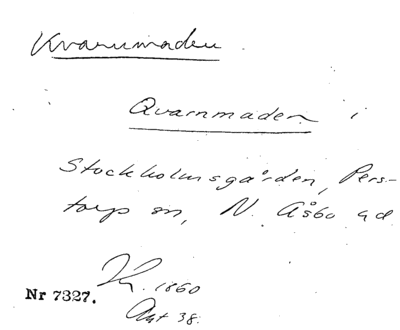 Kvarnmaden
Qvarnmaden i
Stockholmsgården, Pers-
torps sn, N. Åsbo hd
1860
Nr 7327.
Akt 38.